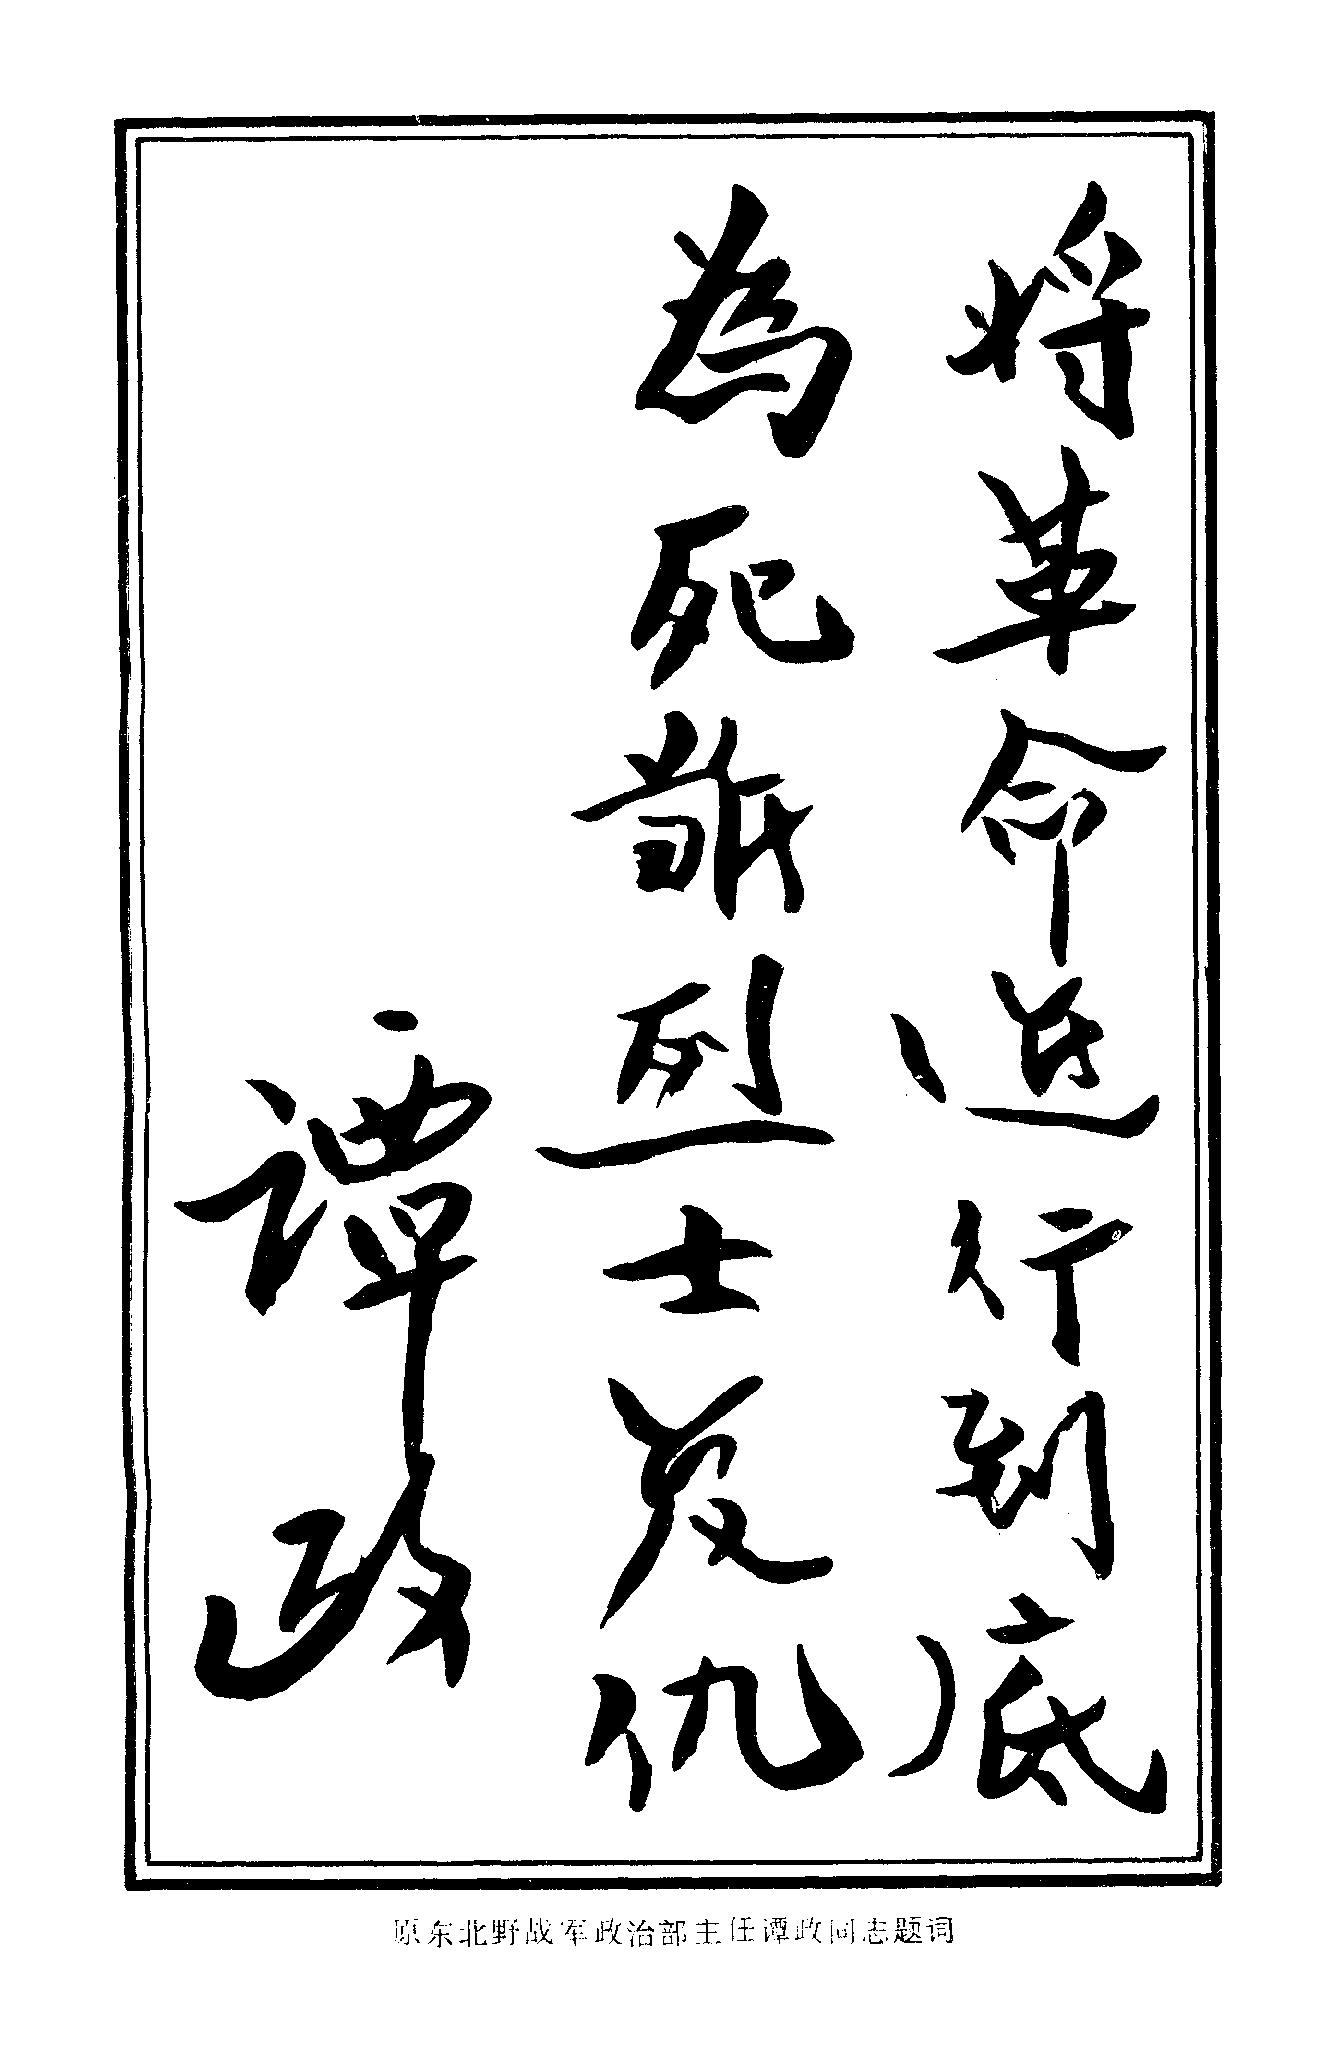 将革命進行到底
為死難烈士复仇
譚政
原东北野战军政治部主任谭政同志题词